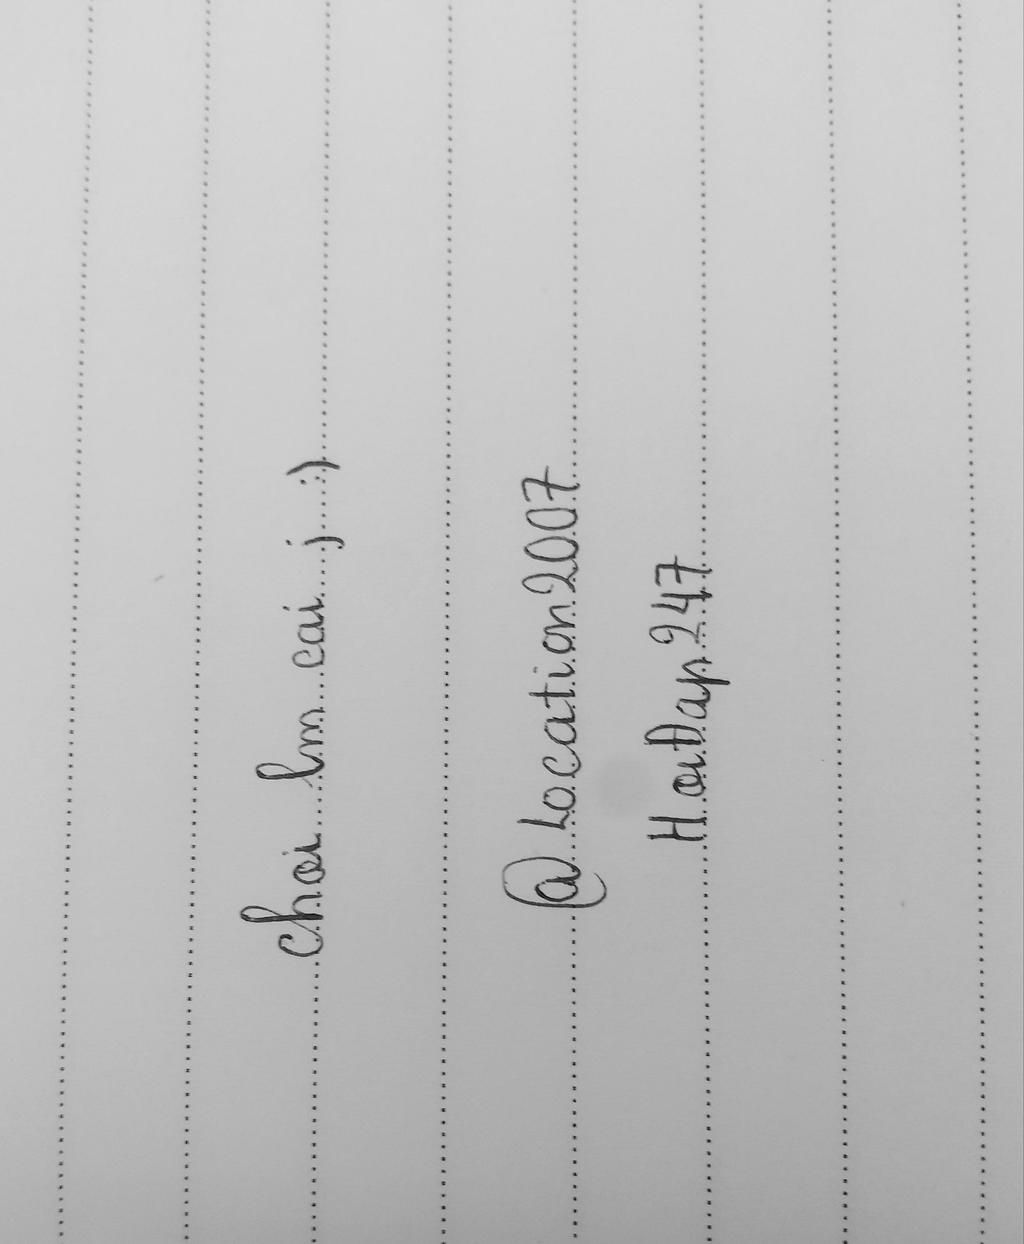 choi lm cai j :)
@Location2007
HoiDap247